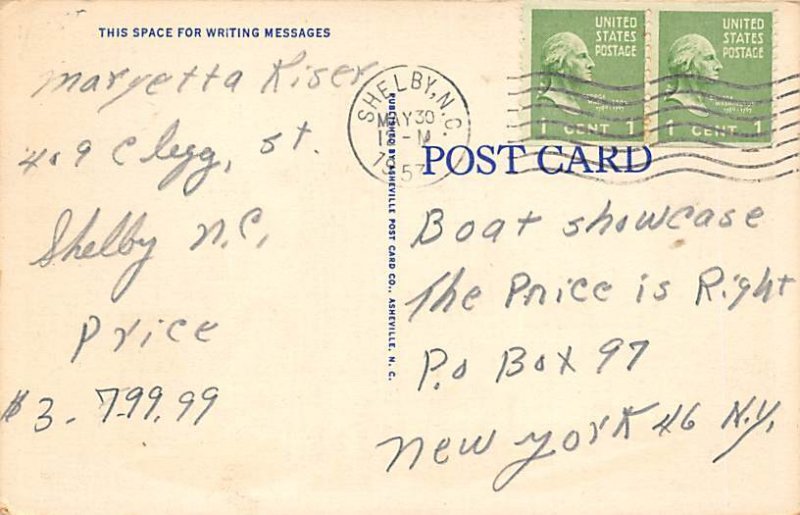 THIS SPACE FOR WRITING MESSAGES
Maryetta Kiser
409 Clegg, St.
Shelby N.C.
Price
$3-799.99
PUBLISHED BY ASHEVILLE POST CARD CO., ASHEVILLE, N. C.
SHELBY, N.C.
MAY 30
1957
UNITED
STATES
POSTAGE
1 CENT 1
UNITED
STATES
POSTAGE
1 CENT 1
POST CARD
Boat showcase
The Price is Right
P.o Box 97
New York 46 N.Y.